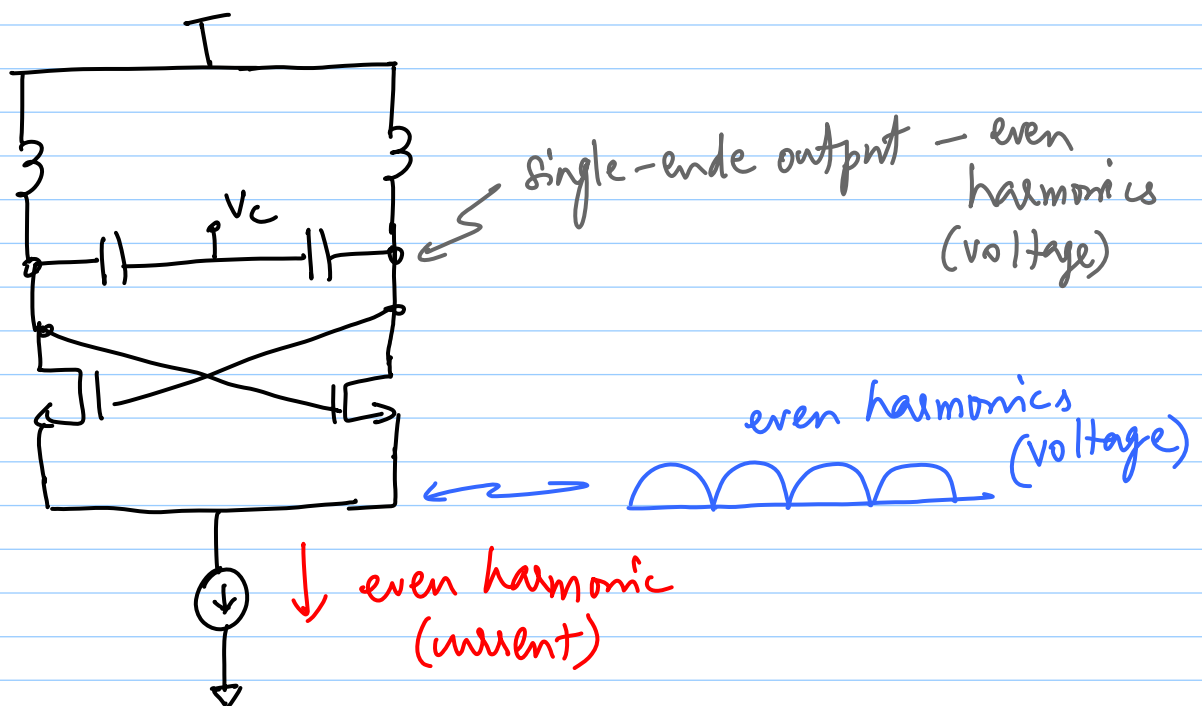 single-ende output - even
harmonics
(voltage)
Vc
even harmonics
(voltage)
even harmonic
(current)